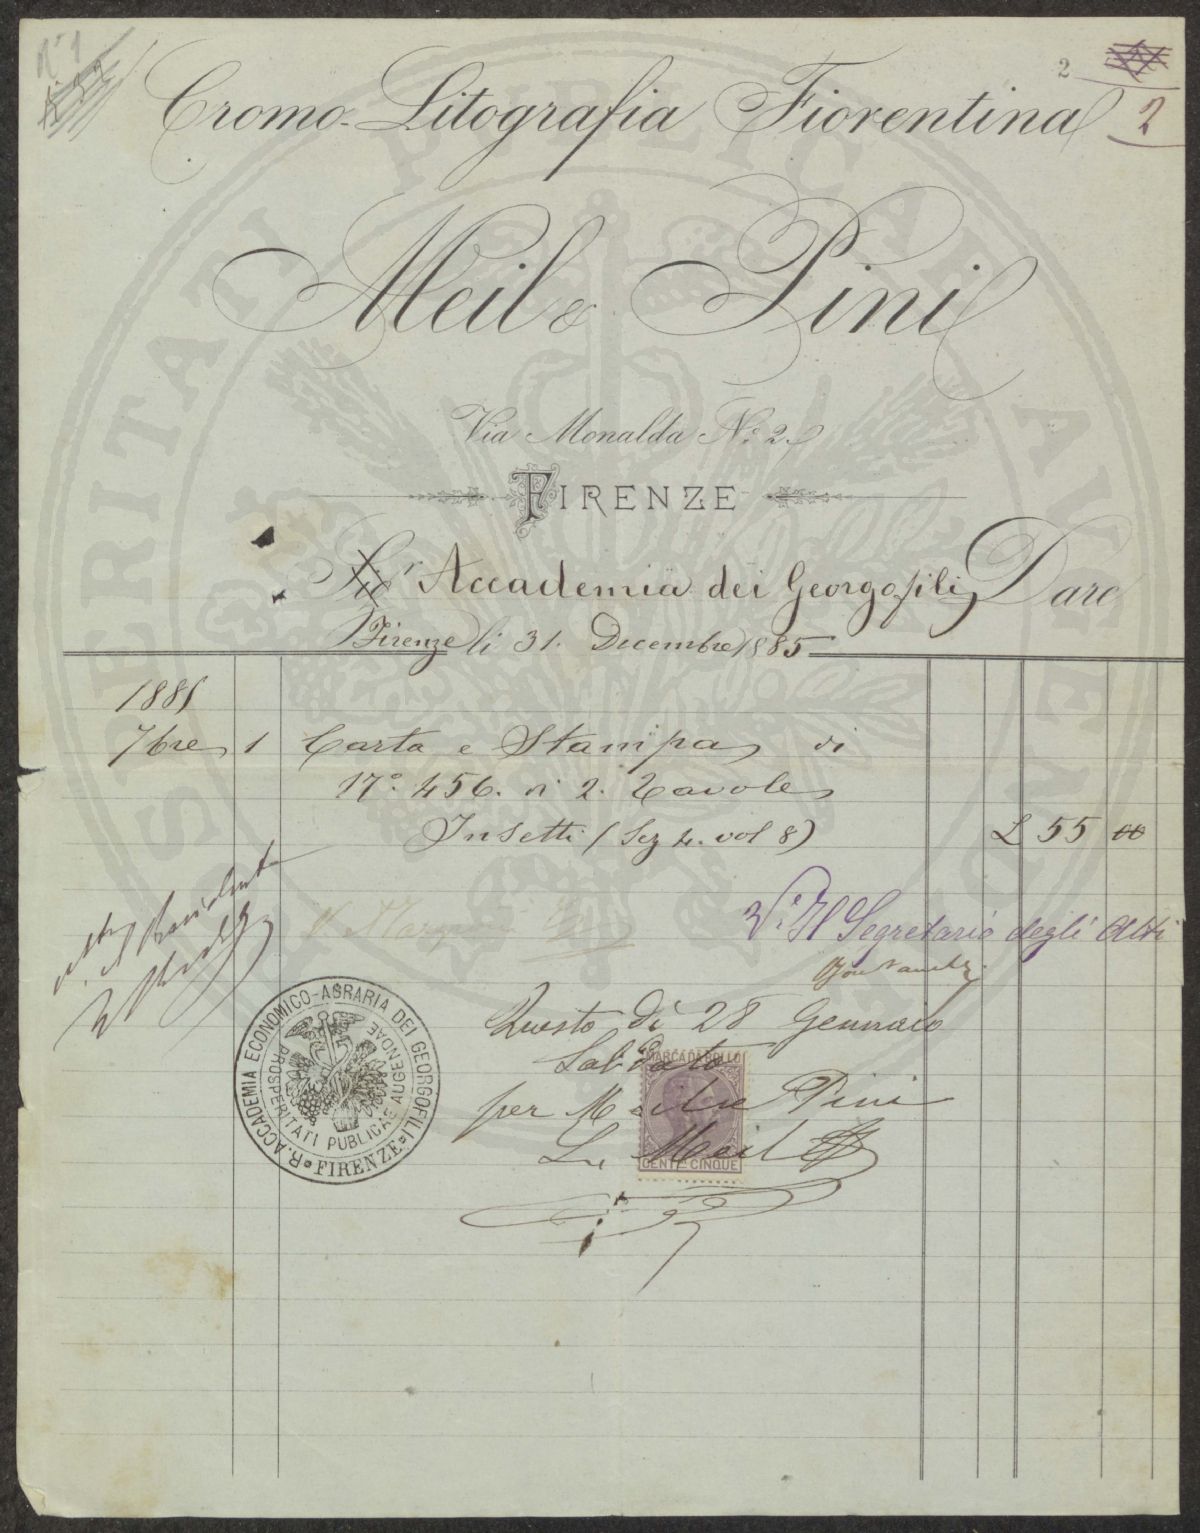 N° 1
2
2
Cromo-Litografia Fiorentina
Meil & Pini
Via Monalda N.° 2.
FIRENZE
Accademia dei Georgofili Dare
Firenze li 31. Decembre 1885
1885
7bre 1 Carta e Stampa di
N°. 456. di 2. Tavole
Insetti (Sez 4. vol 8) L 55 00
V° Il Segretario degli Atti
Questo dì 28 Gennaio
Saldato
per Meil e Pini
Meil
MARCA DA BOLLO
CENT. CINQUE
R. ACCADEMIA ECONOMICO-AGRARIA DEI GEORGOFILI
FIRENZE
PROSPERITATI PUBLICAE AUGENDAE
PROSPERITATI PUBLICAE AUGENDAE